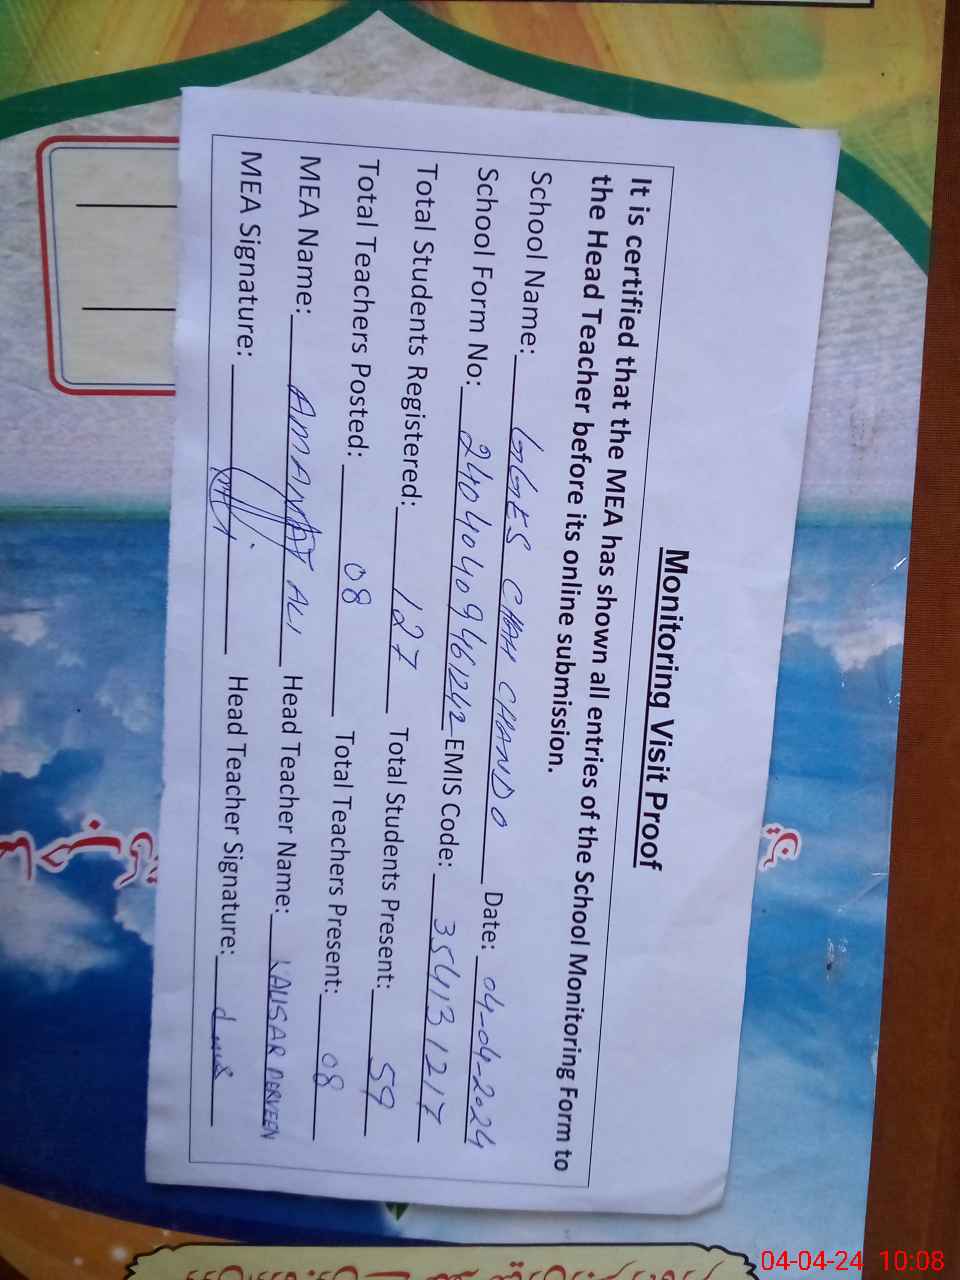 Monitoring Visit Proof
It is certified that the MEA has shown all entries of the School Monitoring Form to
the Head Teacher before its online submission.
School Name: GGES CHAH CHANDO Date: 04-04-2024
School Form No: EMIS Code: 354131217
Total Students Registered: 127 Total Students Present: 59
Total Teachers Posted: 08 Total Teachers Present: 08
MEA Name: AMANAT ALI Head Teacher Name: KAUSAR PERVEEN
MEA Signature: Head Teacher Signature:
04-04-24 10:08